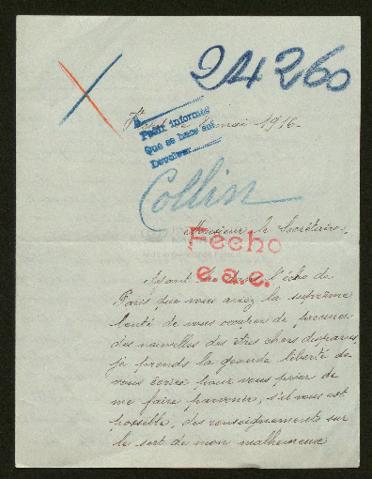 24260
mai 1916
Pedir informes
Que se hace saber
Devolver
Collin
Monsieur le Secrétaire,
Fecho
e.a.e.
Ayant lu dans l'écho de
Paris que vous aviez la suprême
bonté de vous occuper de procurer
des nouvelles des êtres chers disparus,
je prends la grande liberté de
vous écrire pour vous prier de
me faire parvenir, s'il vous est
possible, des renseignements sur
le sort de mon malheureux